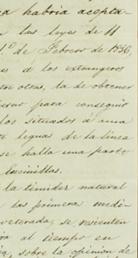 habria acepta-
las leyes de 11
1º de Febrero de 1856,
á los extrangeros
otras, la de obtener
para conseguir
los situados á una
leguas de la linea
se halla una parte
la timidez natural
las primeras medi-
se resienten
al tiempo en
sobre la opinion de